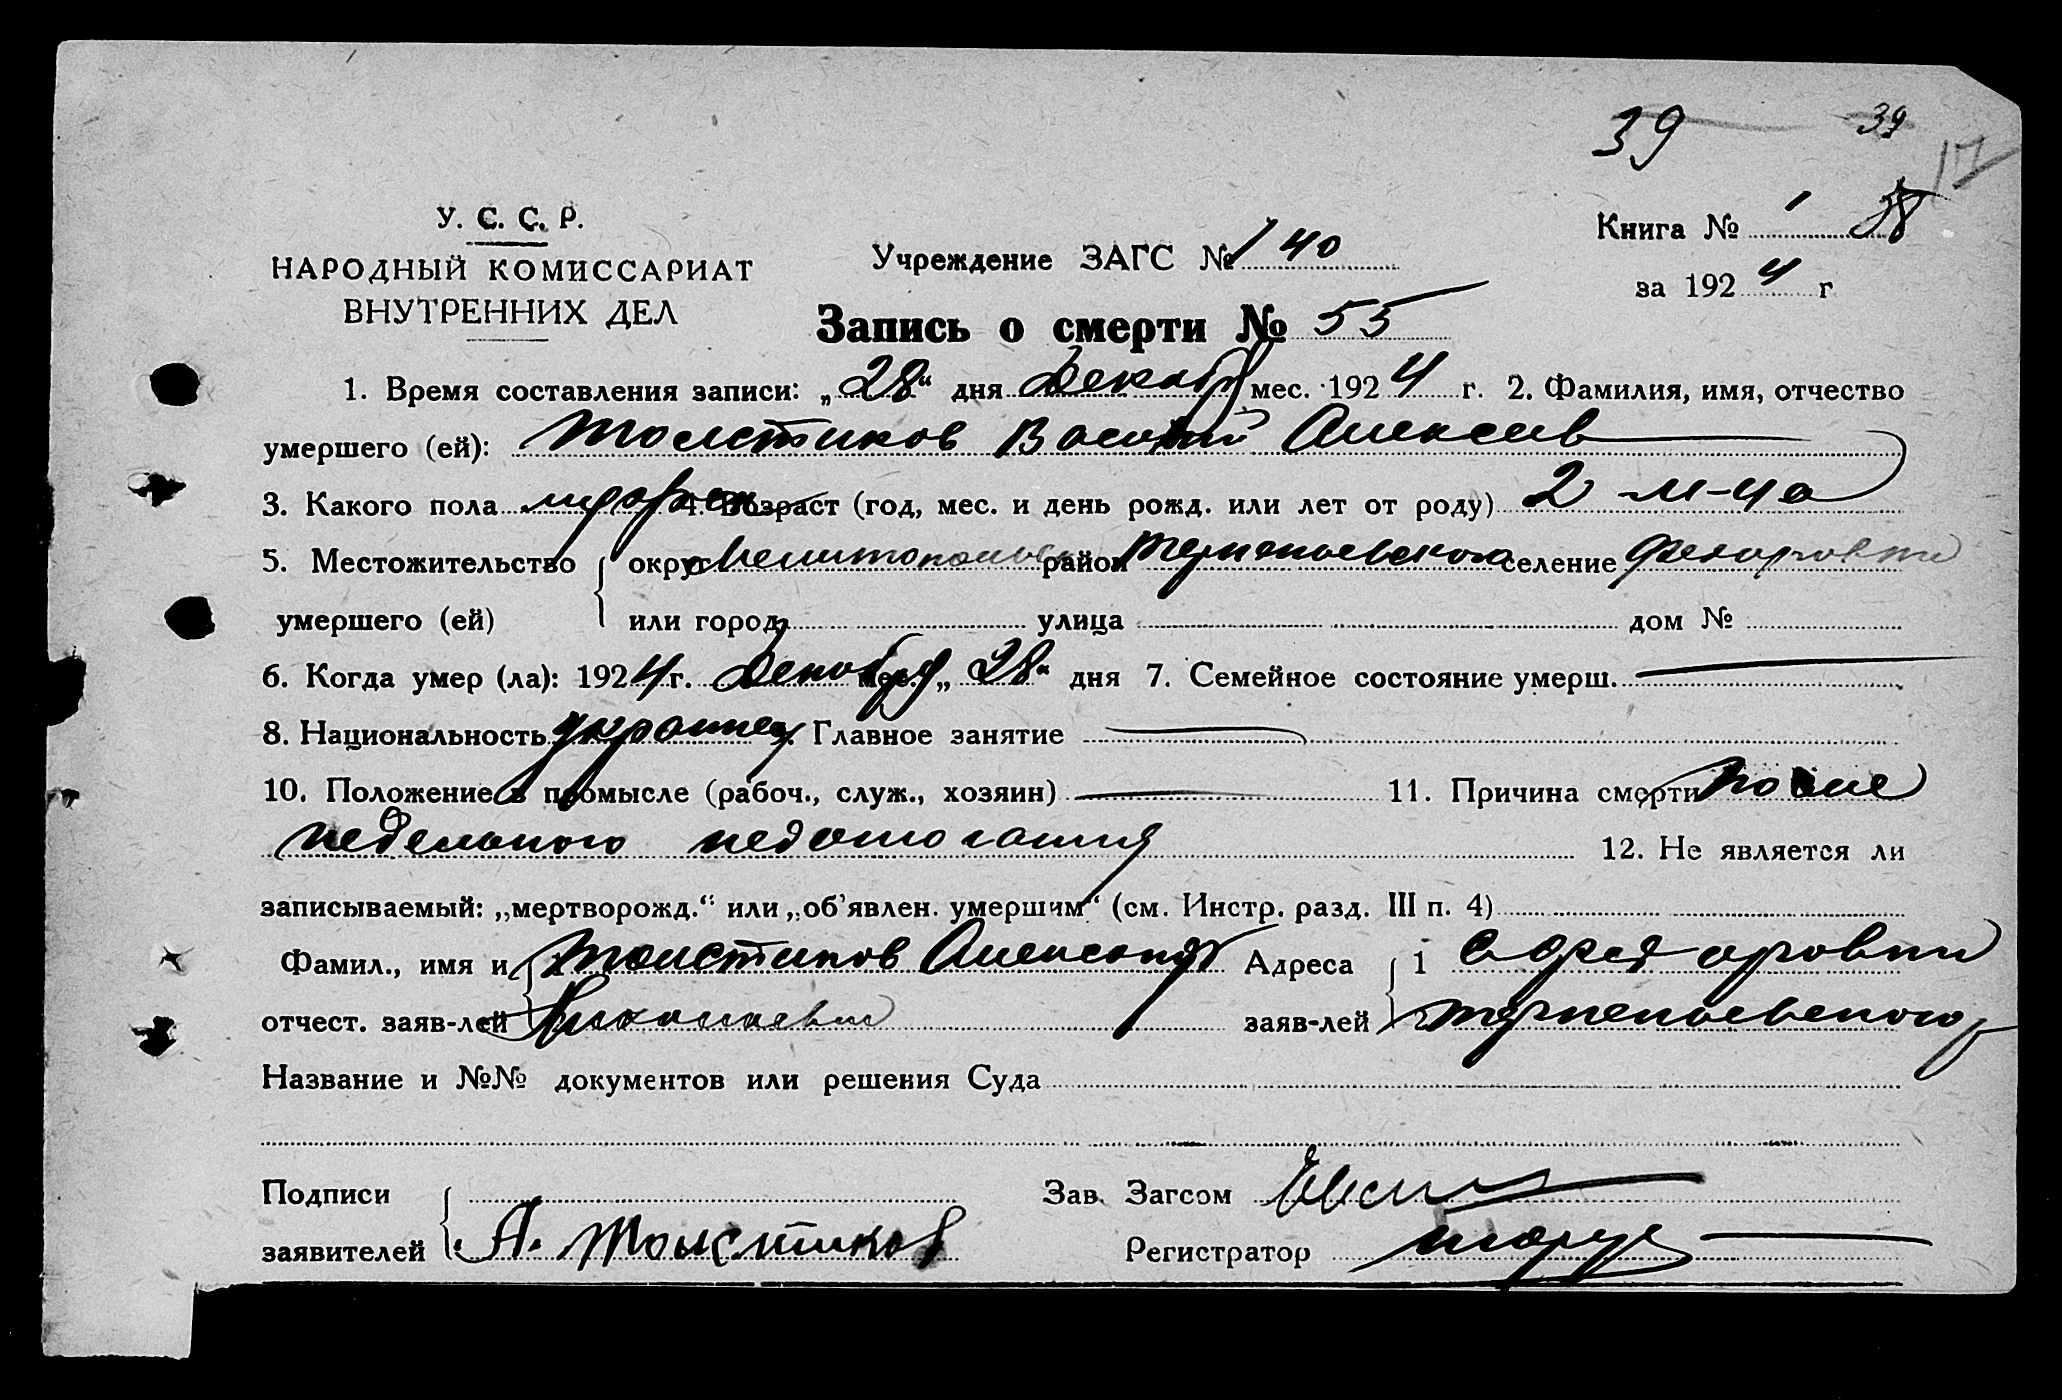 39 39
17
У. С. С. Р.
НАРОДНЫЙ КОМИССАРИАТ
ВНУТРЕННИХ ДЕЛ
Учреждение ЗАГС № 140
Книга № 1
за 1924 г
Запись о смерти № 55
1. Время составления записи: „28“ дня Декабр мес. 1924 г. 2. Фамилия, имя, отчество
умершего (ей): Толстиков Василий Алексеев
3. Какого пола 4. Возраст (год, мес. и день рожд. или лет от роду) 2 м-ца
5. Местожительство округ Мелитопольск район Терпеньевского селение Федоровки
умершего (ей) или город улица дом №
6. Когда умер (ла): 1924 г. Декабря мес. „28“ дня 7. Семейное состояние умерш.
8. Национальность украинец 9. Главное занятие
10. Положение в промысле (рабоч., служ., хозяин) 11. Причина смерти после
недельного недомогания 12. Не является ли
записываемый: „мертворожд.“ или „об'явлен. умершим“ (см. Инстр. разд. III п. 4)
Фамил., имя и Толстиков Александр Адреса 1 с Федоровки
отчест. заяв-лей Николаевич заяв-лей Терпеньевского р
Название и №№ документов или решения Суда
Подписи Зав. Загсом
заявителей А. Толстиков Регистратор